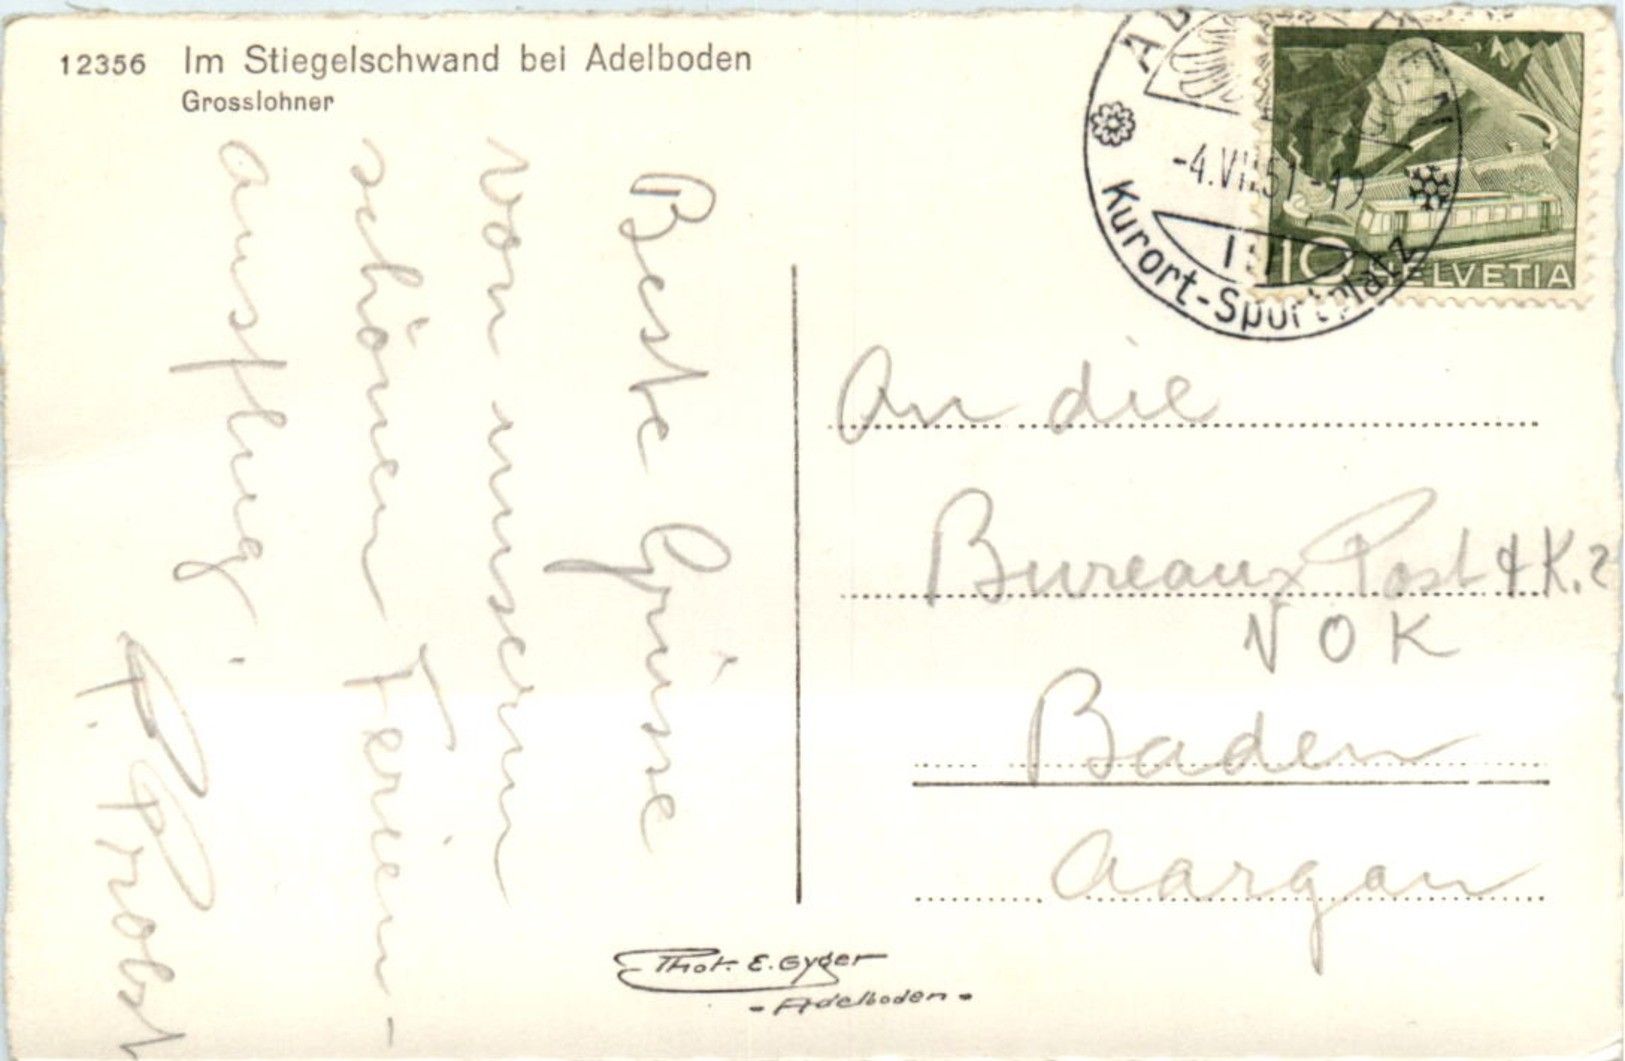 12356 Im Stiegelschwand bei Adelboden
Grosslohner
Beste Grüsse
von unserm
schönen Ferien-
ausflug.
P. Probst
ADELBODEN
-4.VII.51-19
Kurort-Sportplatz
10 HELVETIA
An die
Bureaux Post & K.2
NOK
Baden
Aargau
Phot. E. Gyger
- Adelboden -